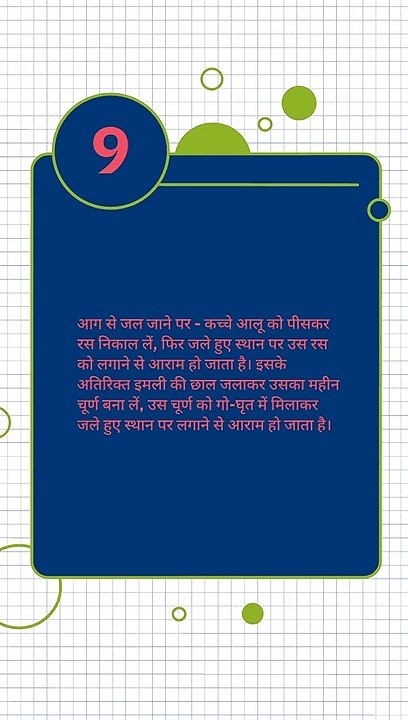 9
आग से जल जाने पर - कच्चे आलू को पीसकर
रस निकाल लें, फिर जले हुए स्थान पर उस रस
को लगाने से आराम हो जाता है। इसके
अतिरिक्त इमली की छाल जलाकर उसका महीन
चूर्ण बना लें, उस चूर्ण को गो-घृत में मिलाकर
जले हुए स्थान पर लगाने से आराम हो जाता है।